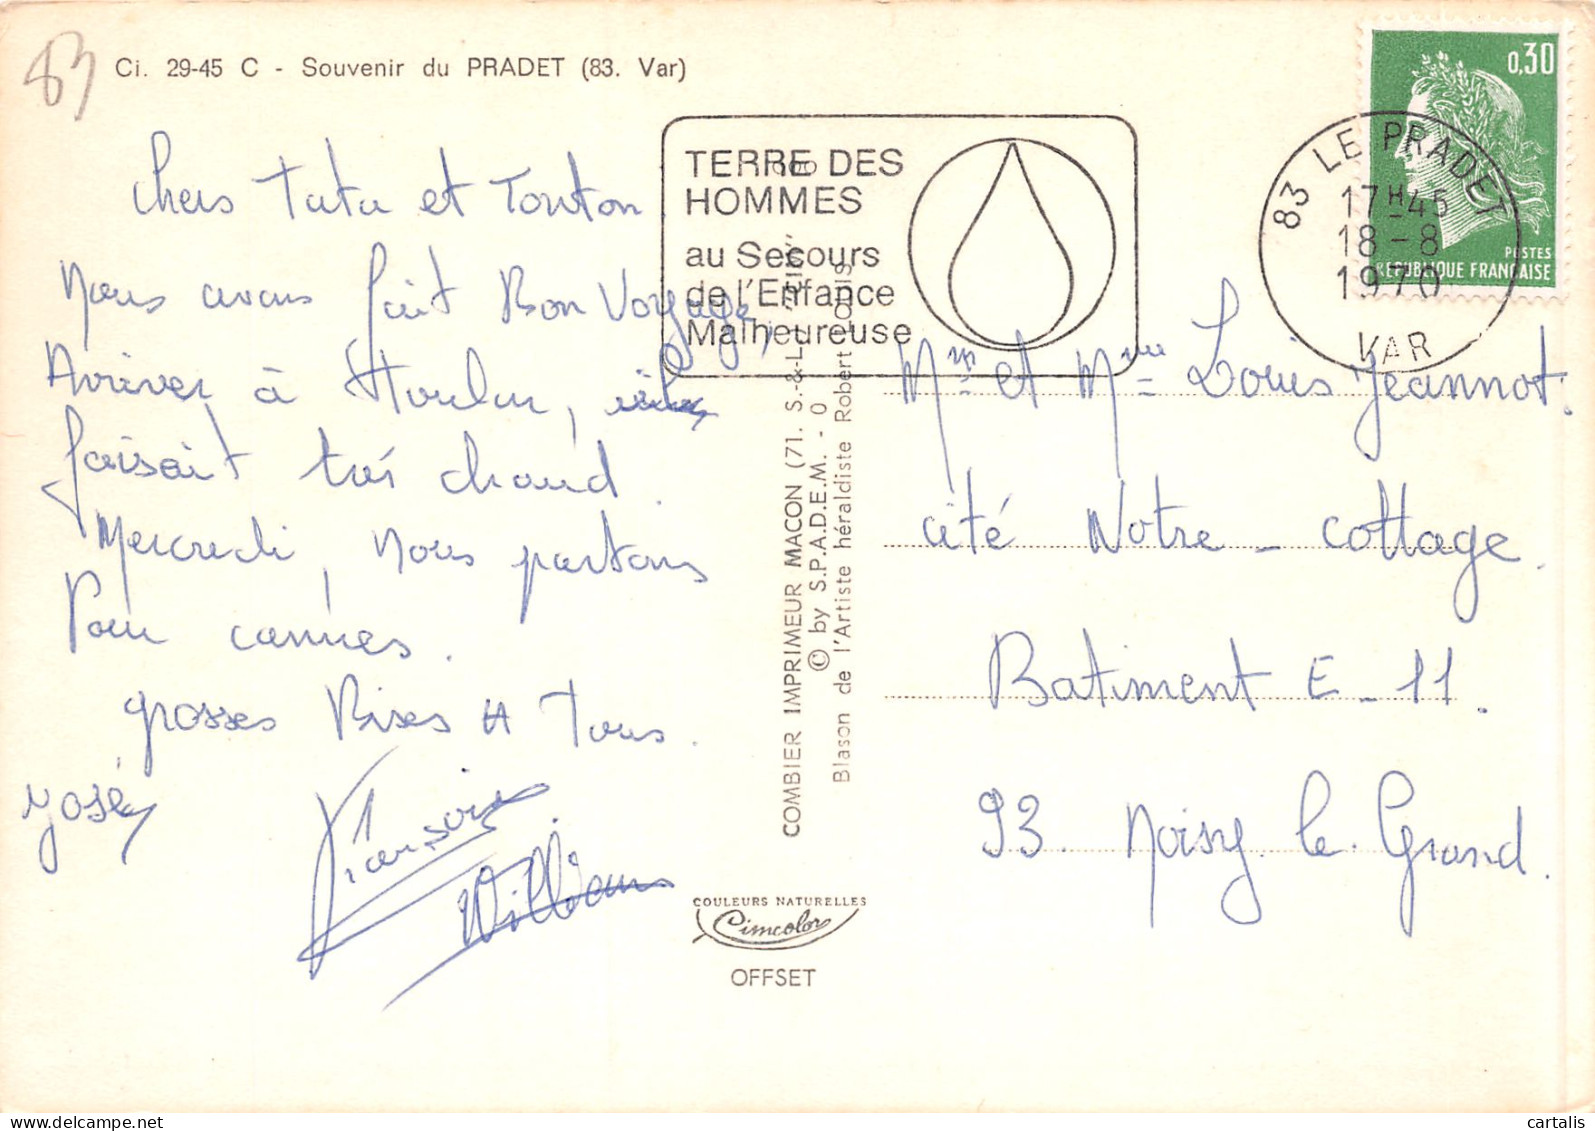 83
Ci. 29-45 C - Souvenir du PRADET (83. Var)
Chers Tata et Tonton
Nous avons fait Bon Voyage,
Arriver à
faisait très chaud.
Mercredi, nous partons
Pour cannes.
grosses Bises A Tous.
José
François
William
TERRE DES
HOMMES
au Secours
de l'Enfance
Malheureuse
83 LE PRADET
17H45
18-8
1970
VAR
0,30
POSTES
REPUBLIQUE FRANÇAISE
COMBIER IMPRIMEUR MACON (71. S.-&-L.) "CIM"
© by S.P.A.D.E.M. - 0
Blason de l'Artiste héraldiste Robert Louis
COULEURS NATURELLES
Cimcolor
OFFSET
Mr et Mme Louis Jeannot.
cité Notre - cottage.
Batiment E - 11.
93. Noisy le Grand.
cartalis
www.delcampe.net